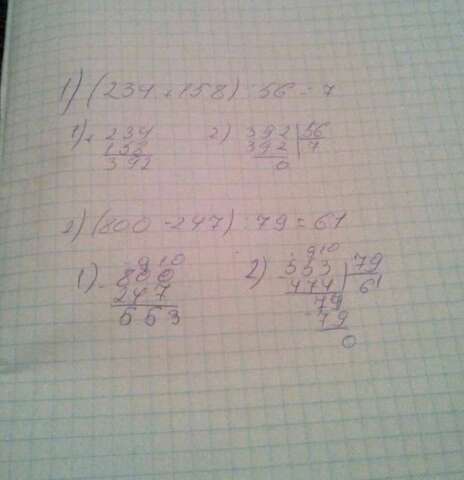 1) (234 + 158) : 56 = 7
1) + 234 2) 392 | 56
158 392 7
392 0
2) (800 - 247) : 79 = 61
1) 9 10 2) 9 10
- 800 553 | 79
247 474 61
553 79
- 79
0